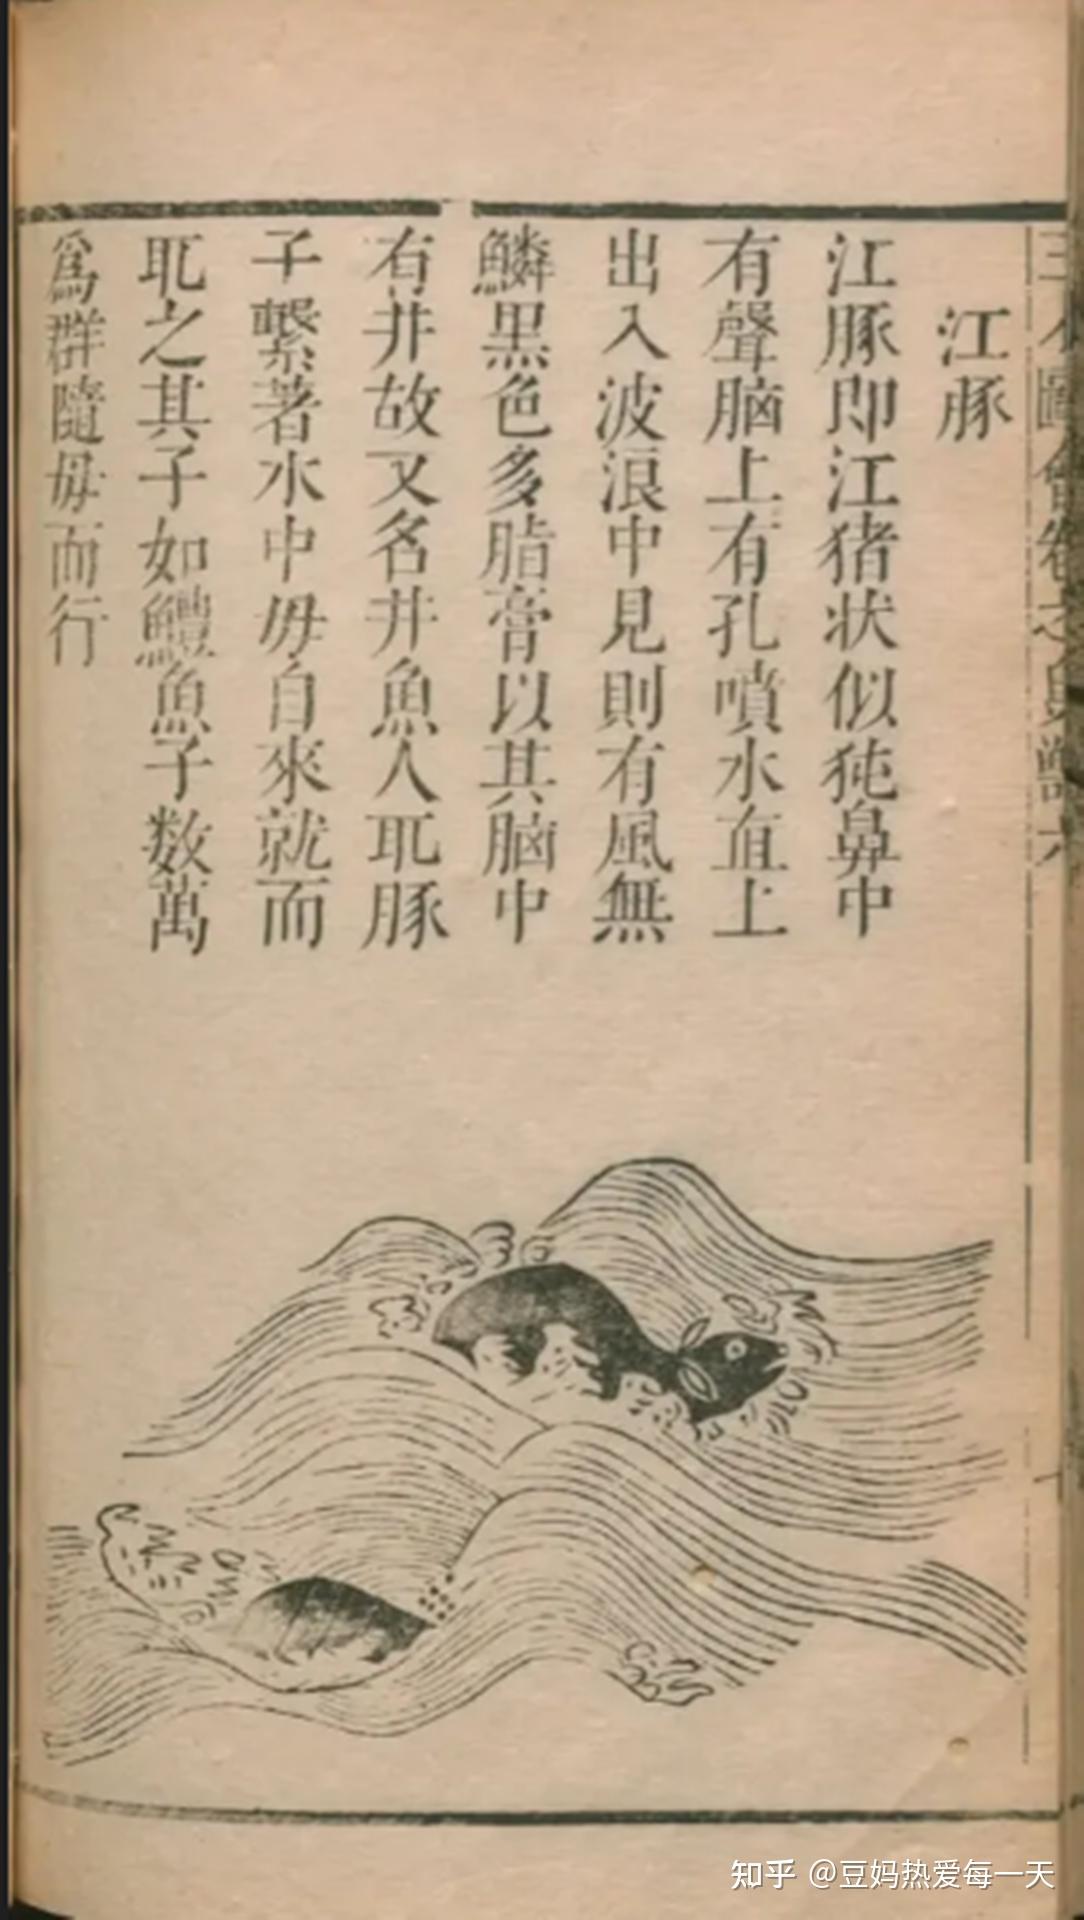 江豚
江豚即江猪状似㹠鼻中
有聲脑上有孔噴水直上
出入波浪中見則有風無
鱗黒色多脂膏以其脑中
有井故又名井魚人耴豚
子繫著水中毋自來就而
耴之其子如鱧魚子数萬
爲群隨毋而行
知乎 @豆妈热爱每一天